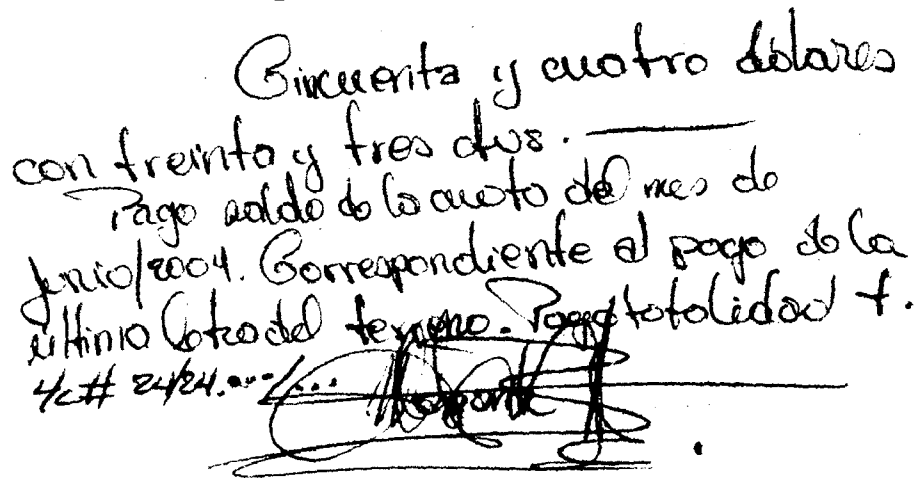 Cincuenta y cuatro dólares
con treinta y tres ctvs.
Pago saldo de la cuota del mes de
junio/2004. Correspondiente al pago de la
última letra del terreno. Pago totalidad t.
L/c# 24/24.---/...